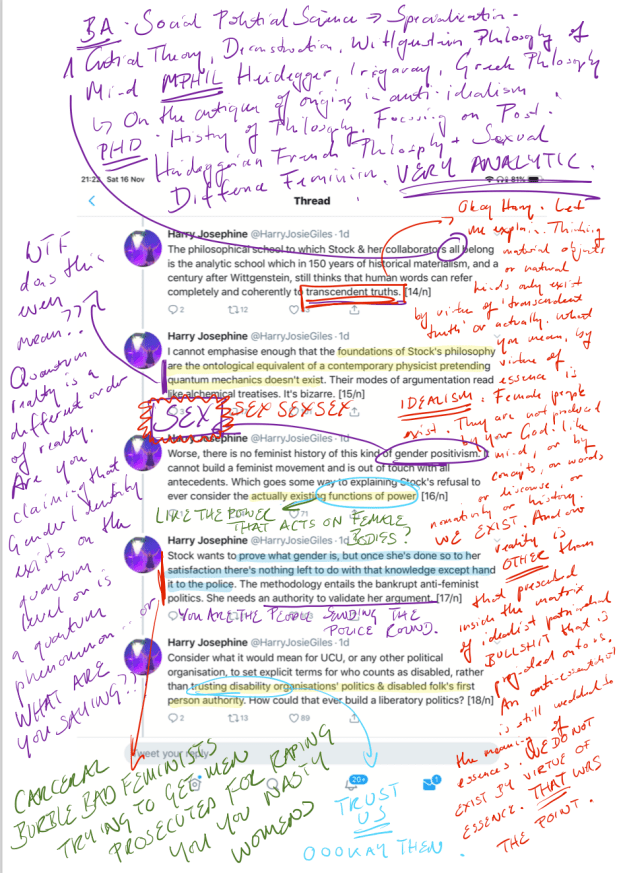 BA - Social Political Science → Specialisation -
Critical Theory, Deconstruction, Wittgenstein Philosophy of
Mind MPHIL Heidegger, Irigaray, Greek Philosophy
↳ On the critique of origins in anti-idealism.
PHD - History of Philosophy, Focusing on Post-
Heideggerian French Philosophy + Sexual
Difference Feminism. VERY ANALYTIC.
21:22 Sat 16 Nov
81%
Thread
Harry Josephine @HarryJosieGiles · 1d
The philosophical school to which Stock & her collaborators all belong
is the analytic school which in 150 years of historical materialism, and a
century after Wittgenstein, still thinks that human words can refer
completely and coherently to transcendent truths. [14/n]
2 12
Harry Josephine @HarryJosieGiles · 1d
I cannot emphasise enough that the foundations of Stock's philosophy
are the ontological equivalent of a contemporary physicist pretending
quantum mechanics doesn't exist. Their modes of argumentation read
like alchemical treatises. It's bizarre. [15/n]
SEX SEX SEX SEX
Harry Josephine @HarryJosieGiles · 1d
Worse, there is no feminist history of this kind of gender positivism. It
cannot build a feminist movement and is out of touch with all
antecedents. Which goes some way to explaining Stock's refusal to
ever consider the actually existing functions of power [16/n]
71
LIKE THE POWER
THAT ACTS ON FEMALE
BODIES?
Harry Josephine @HarryJosieGiles · 1d
Stock wants to prove what gender is, but once she's done so to her
satisfaction there's nothing left to do with that knowledge except hand
it to the police. The methodology entails the bankrupt anti-feminist
politics. She needs an authority to validate her argument. [17/n]
YOU ARE THE PEOPLE SENDING THE
POLICE ROUND.
Harry Josephine @HarryJosieGiles · 1d
Consider what it would mean for UCU, or any other political
organisation, to set explicit terms for who counts as disabled, rather
than trusting disability organisations' politics & disabled folk's first
person authority. How could that ever build a liberatory politics? [18/n]
2 13 89
Tweet your reply
20+
1
WTF
does this
even
mean??
Quantum
reality is a
different order
of reality.
Are you
claiming that
Gender Identity
exists on the
quantum
level or is
a quantum
phenomenon... or
WHAT ARE
YOU SAYING??
Okay Harry. Let
me explain. Thinking
material objects
or natural
kinds only exist
by virtue of 'transcendent
truth' or actually, what
you mean, by
virtue of
essence is
IDEALISM. Female people
exist. They are not produced
by your God-like
mind, or by
concepts, or words
or discourse, or
normativity or history.
WE EXIST. And our
reality is
OTHER than
that prescribed
inside the matrix
of idealist patriarchal
BULLSHIT that is
projected onto us.
An anti-essentialist
is still wedded to
the meaning of
essences. WE DO NOT
EXIST BY VIRTUE OF
ESSENCE. THAT WAS
THE POINT.
CARCERAL
BURBLE BAD FEMINISTS
TRYING TO GET MEN
PROSECUTED FOR RAPING
YOU YOU NASTY
WOMENS
TRUST
US
OOOKAY THEN.